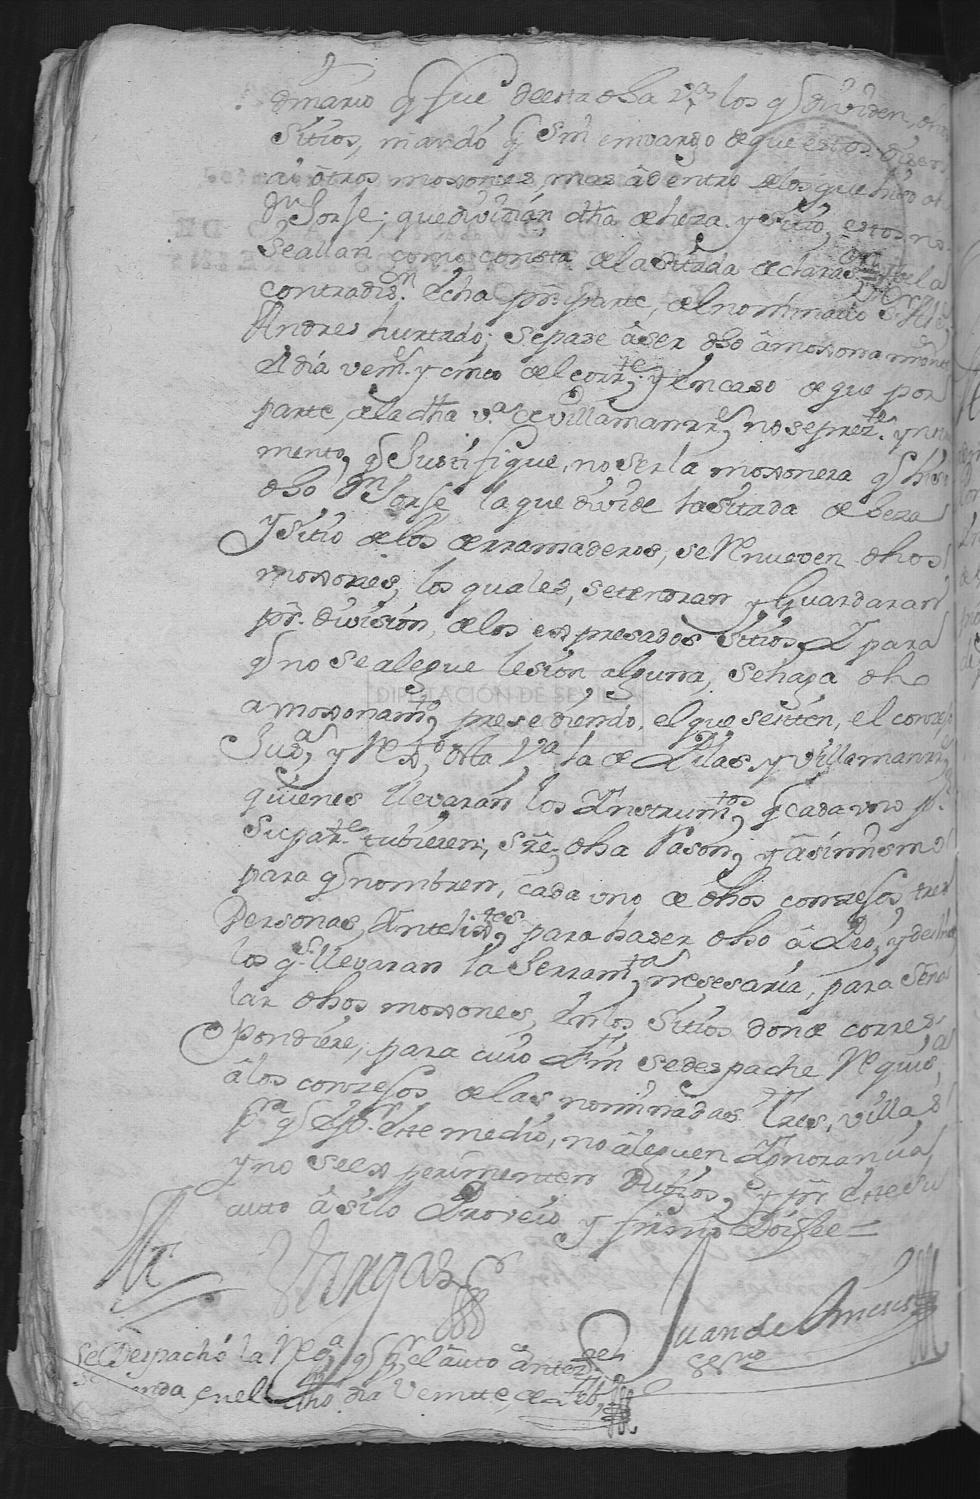 dinario q fue deesta dha vª los q dividen, dhos
Sitios, mando q Sin embargo de que estos dizen
ai otros moxones mas adentro delos que hizo el
Dn Jorse; que dividian, dha deheza y Sitio, estos no
Seallan como consta dela Sitada declaras.on
contradis.n dcha por parte, del nominado Dn
Andres hurtado; Sepase âser dho âmoxonamiento
el dia veint.e y cinco del corrte y Encaso de que por
parte, dela dha v.ª de villamanrrq no seprezte. ynstru
mento, q Justifique, no ser la moxonera q hiso
dho Dn Jorse la que divide lasitada deheza
Y Sitio delos derramaderos, se Renueven dhos
moxones, los quales, setendran y Guardaran
por division, delos expresados Sitios, Y para
q no sealegue lesion alguna, Sehaga dho
amoxonamto, presediendo, el que Sesiten, el consejo
Justª, y Rexto desta Vª la de Pilas, y villamanrrq
quienes llevaran los Ynstrumtos q cada uno p.r
Su parte tubieren, sre dha Rason, y âsimismo
para q nombren, cada uno de dhos consejos, tres
Personas, Yntelixtes, para haser dho â Deo, y deslinde
los qs llevaran la herramta nesesaria, para Seña
lar dhos moxones, En los Sitios donde corres
pondiere, para cuio Fin sedespache Requiso
âlos consejos delas nominadas Tres, villas
pª q Por Este medio, no âleguen Ygnorancia
y no seexperimenten Perjuicios, y por Este su
auto âsi lo Proveio y firmo Doi fee =
Vargas
Juan de
SSno
SeDespachó la Reqª q Por el auto anter
Se manda, en el dho dia Veinte, de Feb.
DIPUTACIÓN DE SEVILLA